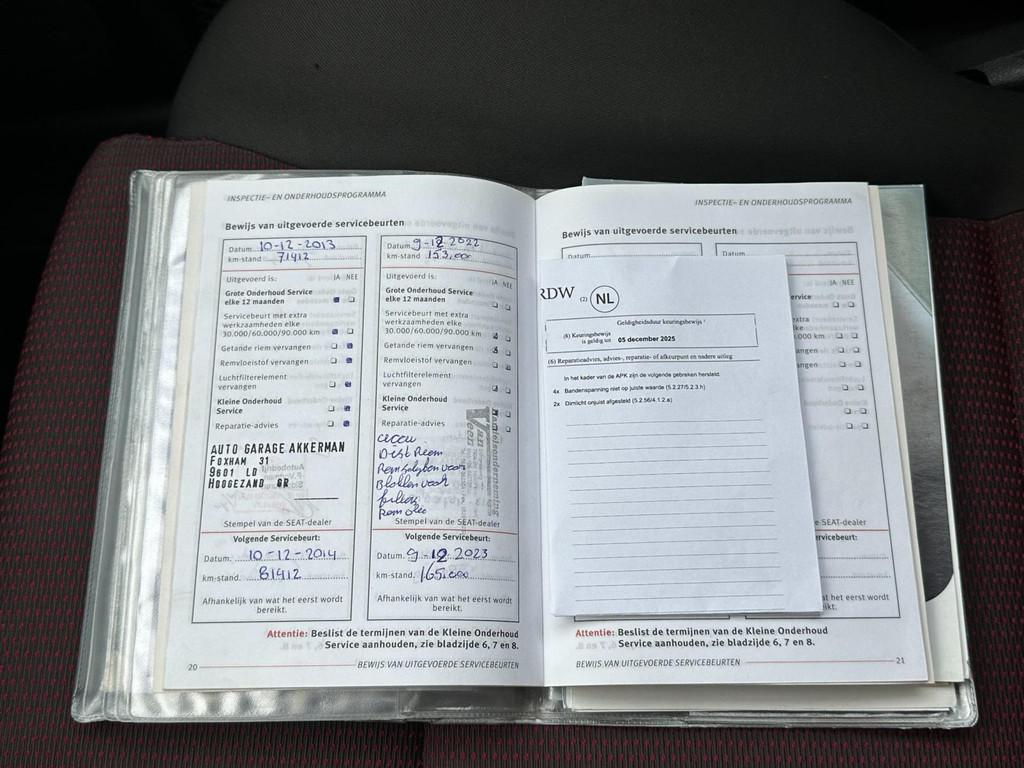 INSPECTIE- EN ONDERHOUDSPROGRAMMA
Bewijs van uitgevoerde servicebeurten
Datum 10-12-2013
km-stand 71412
Uitgevoerd is: JA NEE
Grote Onderhoud Service
elke 12 maanden
Servicebeurt met extra
werkzaamheden elke
30.000/60.000/90.000 km
Getande riem vervangen
Remvloeistof vervangen
Luchtfilterelement
vervangen
Kleine Onderhoud
Service
Reparatie-advies
AUTO GARAGE AKKERMAN
FOXHAM 31
9601 LD
HOOGEZAND GR
Stempel van de SEAT-dealer
Volgende Servicebeurt:
Datum. 10-12-2014
km-stand. 81412
Afhankelijk van wat het eerst wordt
bereikt.
Datum. 9-12 2022
km-stand 153.000
Uitgevoerd is:
JA NEE
Grote Onderhoud Service
elke 12 maanden
Servicebeurt met extra
werkzaamheden elke
30.000/60.000/90.000 km
Getande riem vervangen
Remvloeistof vervangen
Luchtfilterelement
vervangen
Kleine Onderhoud
Service
Reparatie-advies
Dist Riem
Blokken voor
Rem olie
Handelsonderneming
Van
Veen
Stempel van de SEAT-dealer
Volgende Servicebeurt:
Datum. 9-12 2023
km-stand. 165.000
Afhankelijk van wat het eerst wordt
bereikt.
Attentie: Beslist de termijnen van de Kleine Onderhoud
Service aanhouden, zie bladzijde 6, 7 en 8.
20 BEWIJS VAN UITGEVOERDE SERVICEBEURTEN
INSPECTIE- EN ONDERHOUDSPROGRAMMA
Bewijs van uitgevoerde servicebeurten
Datum
Datum
JA NEE
ervice
extra
lke
.000 km
angen
angen
RDW (2) NL
Geldigheidsduur keuringsbewijs
(8) Keuringsbewijs
is geldig tot 05 december 2025
(6) Reparatieadvies, advies-, reparatie- of afkeurpunt en nadere uitleg
In het kader van de APK zijn de volgende gebreken hersteld.
4x Bandenspanning niet op juiste waarde (5.2.27/5.2.3.h)
2x Dimlicht onjuist afgesteld (5.2.56/4.1.2.a)
e SEAT-dealer
ebeurt:
at het eerst wordt
ikt.
Attentie: Beslist de termijnen van de Kleine Onderhoud
Service aanhouden, zie bladzijde 6, 7 en 8.
BEWIJS VAN UITGEVOERDE SERVICEBEURTEN 21